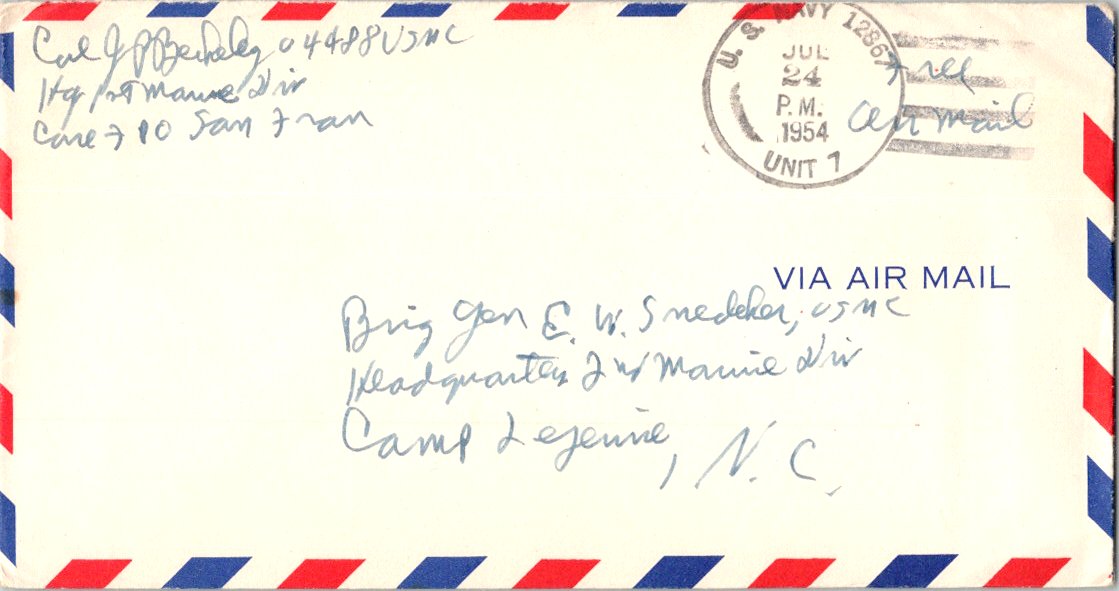 Col J P Berkeley 04488 USMC
Hq 1st Marine Div
Care F P O San Fran
U. S. NAVY 12867
JUL
24
P.M.
1954
UNIT 1
Free
Air Mail
VIA AIR MAIL
Brig Gen E. W. Snedeker, USMC
Headquarters 2nd Marine Div
Camp Lejeune, N. C.